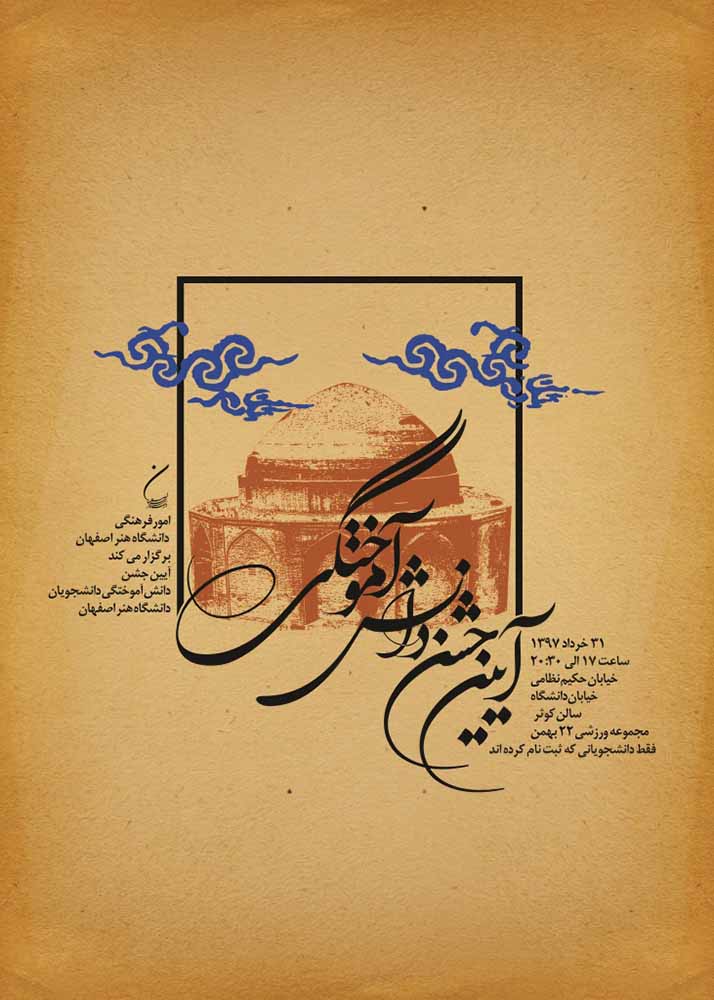 آیین جشن
دانش
آموختگی
امور فرهنگی
دانشگاه هنر اصفهان
برگزار می کند
آیین جشن
دانش آموختگی دانشجویان
دانشگاه هنر اصفهان
۳۱ خرداد ۱۳۹۷
ساعت ۱۷ الی ۲۰:۳۰
خیابان حکیم نظامی
خیابان دانشگاه
سالن کوثر
مجموعه ورزشی ۲۲ بهمن
فقط دانشجویانی که ثبت نام کرده اند